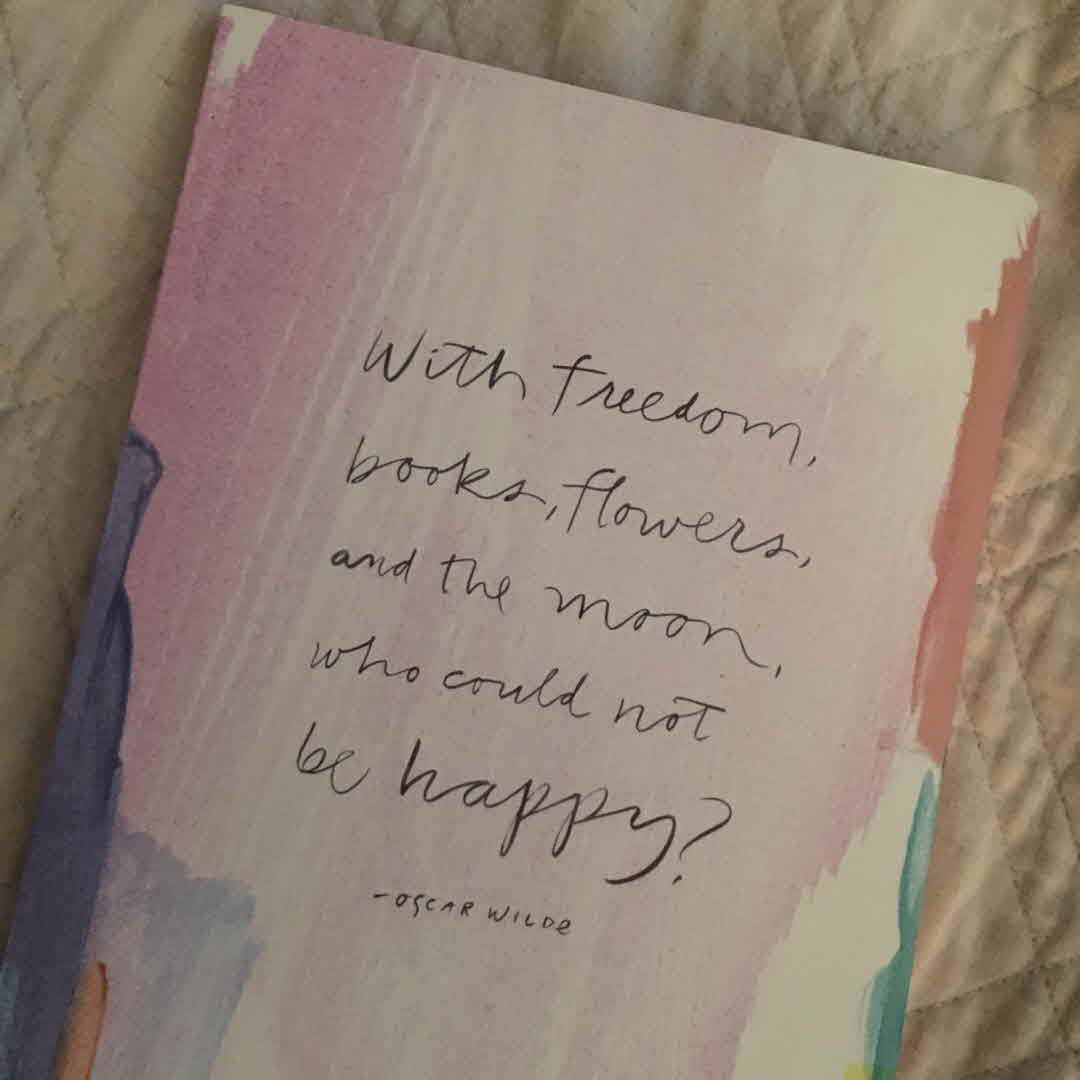 With freedom,
books, flowers,
and the moon,
who could not
be happy?
-OSCAR WILDe